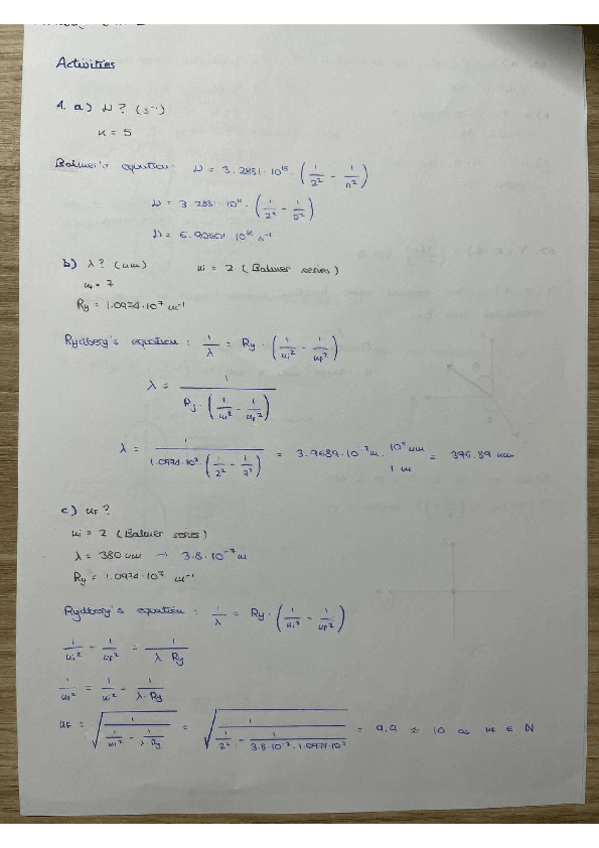 Activities
1. a) ν? (s⁻¹)
n = 5
Balmer's equation: ν = 3.2881·10¹⁵·(1/2² - 1/n²)
ν = 3.2881·10¹⁵·(1/2² - 1/5²)
s⁻¹
b) λ? (nm) ni = 2 (Balmer series)
nf = 7
Ry = 1.0974·10⁷ m⁻¹
Rydberg's equation: 1/λ = Ry·(1/ni² - 1/nf²)
λ = 1/(Ry·(1/ni² - 1/nf²))
λ = 1/(1.0974·10⁷·(1/2² - 1/7²)) = 3.9689·10⁻⁷m · 10⁹ nm/1 m = 396.89 nm
c) nf?
ni = 2 (Balmer series)
λ = 380 nm → 3.8·10⁻⁷ m
Ry = 1.0974·10⁷ m⁻¹
Rydberg's equation: 1/λ = Ry·(1/ni² - 1/nf²)
1/ni² - 1/nf² = 1/(λ·Ry)
1/nf² = 1/ni² - 1/(λ·Ry)
nf = √(1/(1/ni² - 1/(λ·Ry))) = √(1/(1/2² - 1/(3.8·10⁻⁷·1.0974·10⁷))) = 9.9 ≈ 10 as nf ∈ N